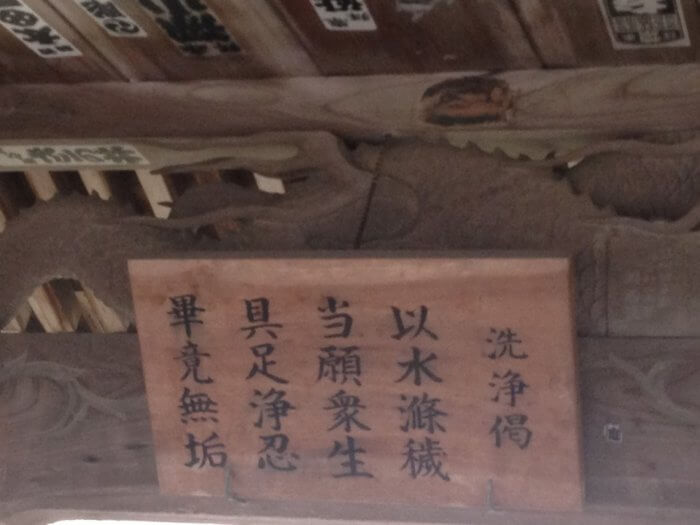 洗浄偈
以水滌穢
当願衆生
具足浄忍
畢竟無垢